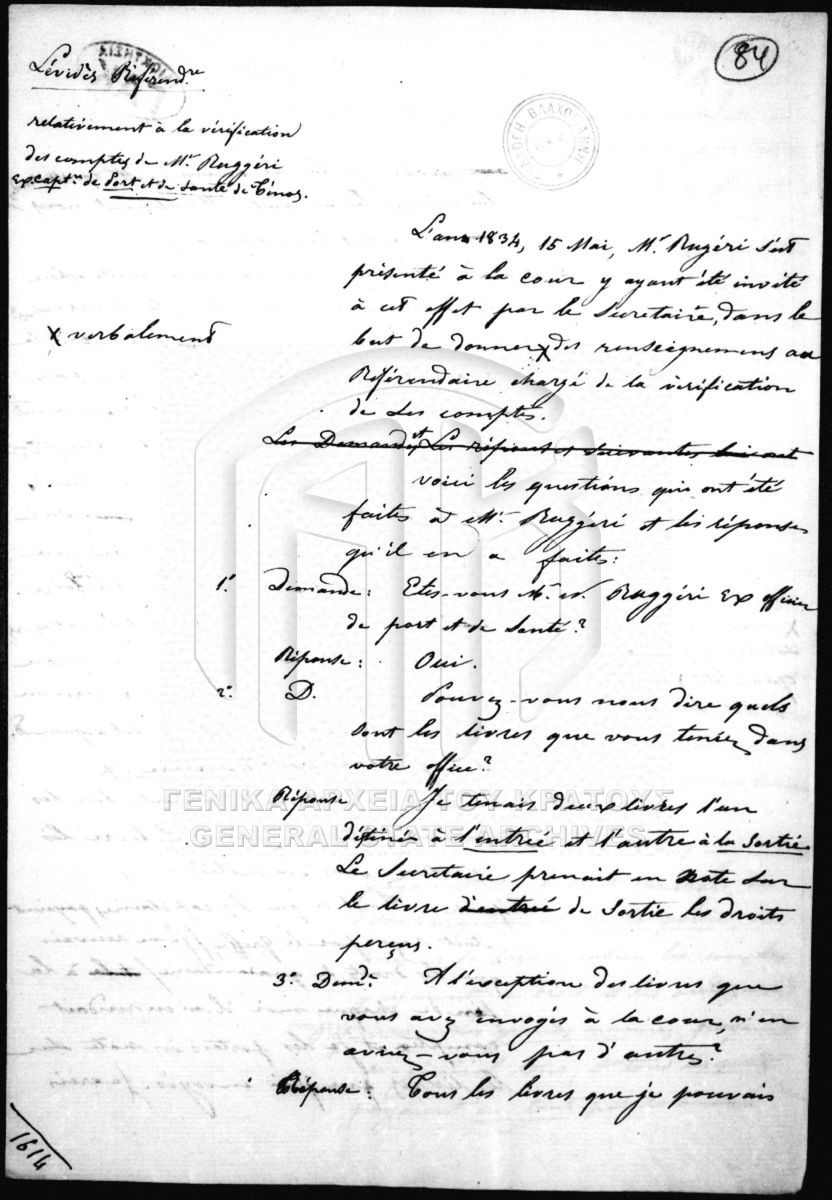 84
Lévidès Référendre
relativement à la vérification
des comptes de Mr Ruggéri
excaptne de Port et de Santé de Tinos.
ΣΥΛΛΟΓΗ ΒΛΑΧΟΓΙΑΝΝΗ
L'an 1834, 15 Mai, Mr Rugéri s'est
présenté à la cour y ayant été invité
à cet effet par le Secretaire, dans le
x verbalement
but de donner x des renseignemens au
Référendaire chargé de la vérification
de ses comptes.
Les Demandes et Les réponses suivantes
voici les questions qui ont été
faites à Mr Ruggéri et les réponses
qu'il en a faites:
1º Demande: Etes-vous Mr N. Ruggéri Ex officier
de port et de Santé?
Réponse: Oui.
2º D. Pouvez-vous nous dire quels
sont les livres que vous teniez dans
votre office?
ΓΕΝΙΚΑ ΑΡΧΕΙΑ ΤΟΥ ΚΡΑΤΟΥΣ
GENERAL STATE ARCHIVES
Réponse Je tenais deux livres l'un
destiné à l'entrée et l'autre à la Sortie.
Le Secretaire prenait en Note sur
le livre d'entrée de Sortie les droits
perçus.
3º Demde A l'exception des livres que
vous avez envoyés à la cour, n'en
aviez-vous pas d'autres?
Réponse: Tous les livres que je pouvais
1614